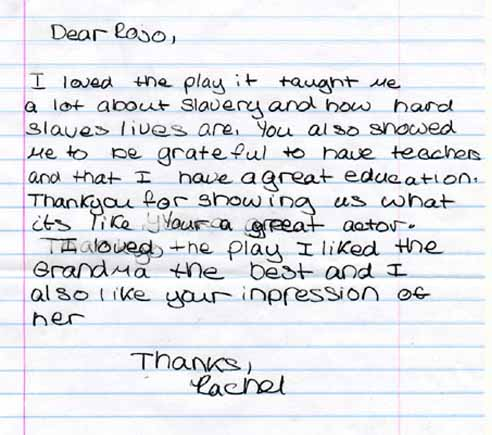 Dear Rojo,
I loved the play it taught me
a lot about slavery and how hard
slaves lives are. You also showed
me to be grateful to have teachers
and that I have a great education.
Thankyou for showing us what
its like your a great actor.
I loved the play I liked the
Grandma the best and I
also like your inpression of
her
Thanks,
Rachel